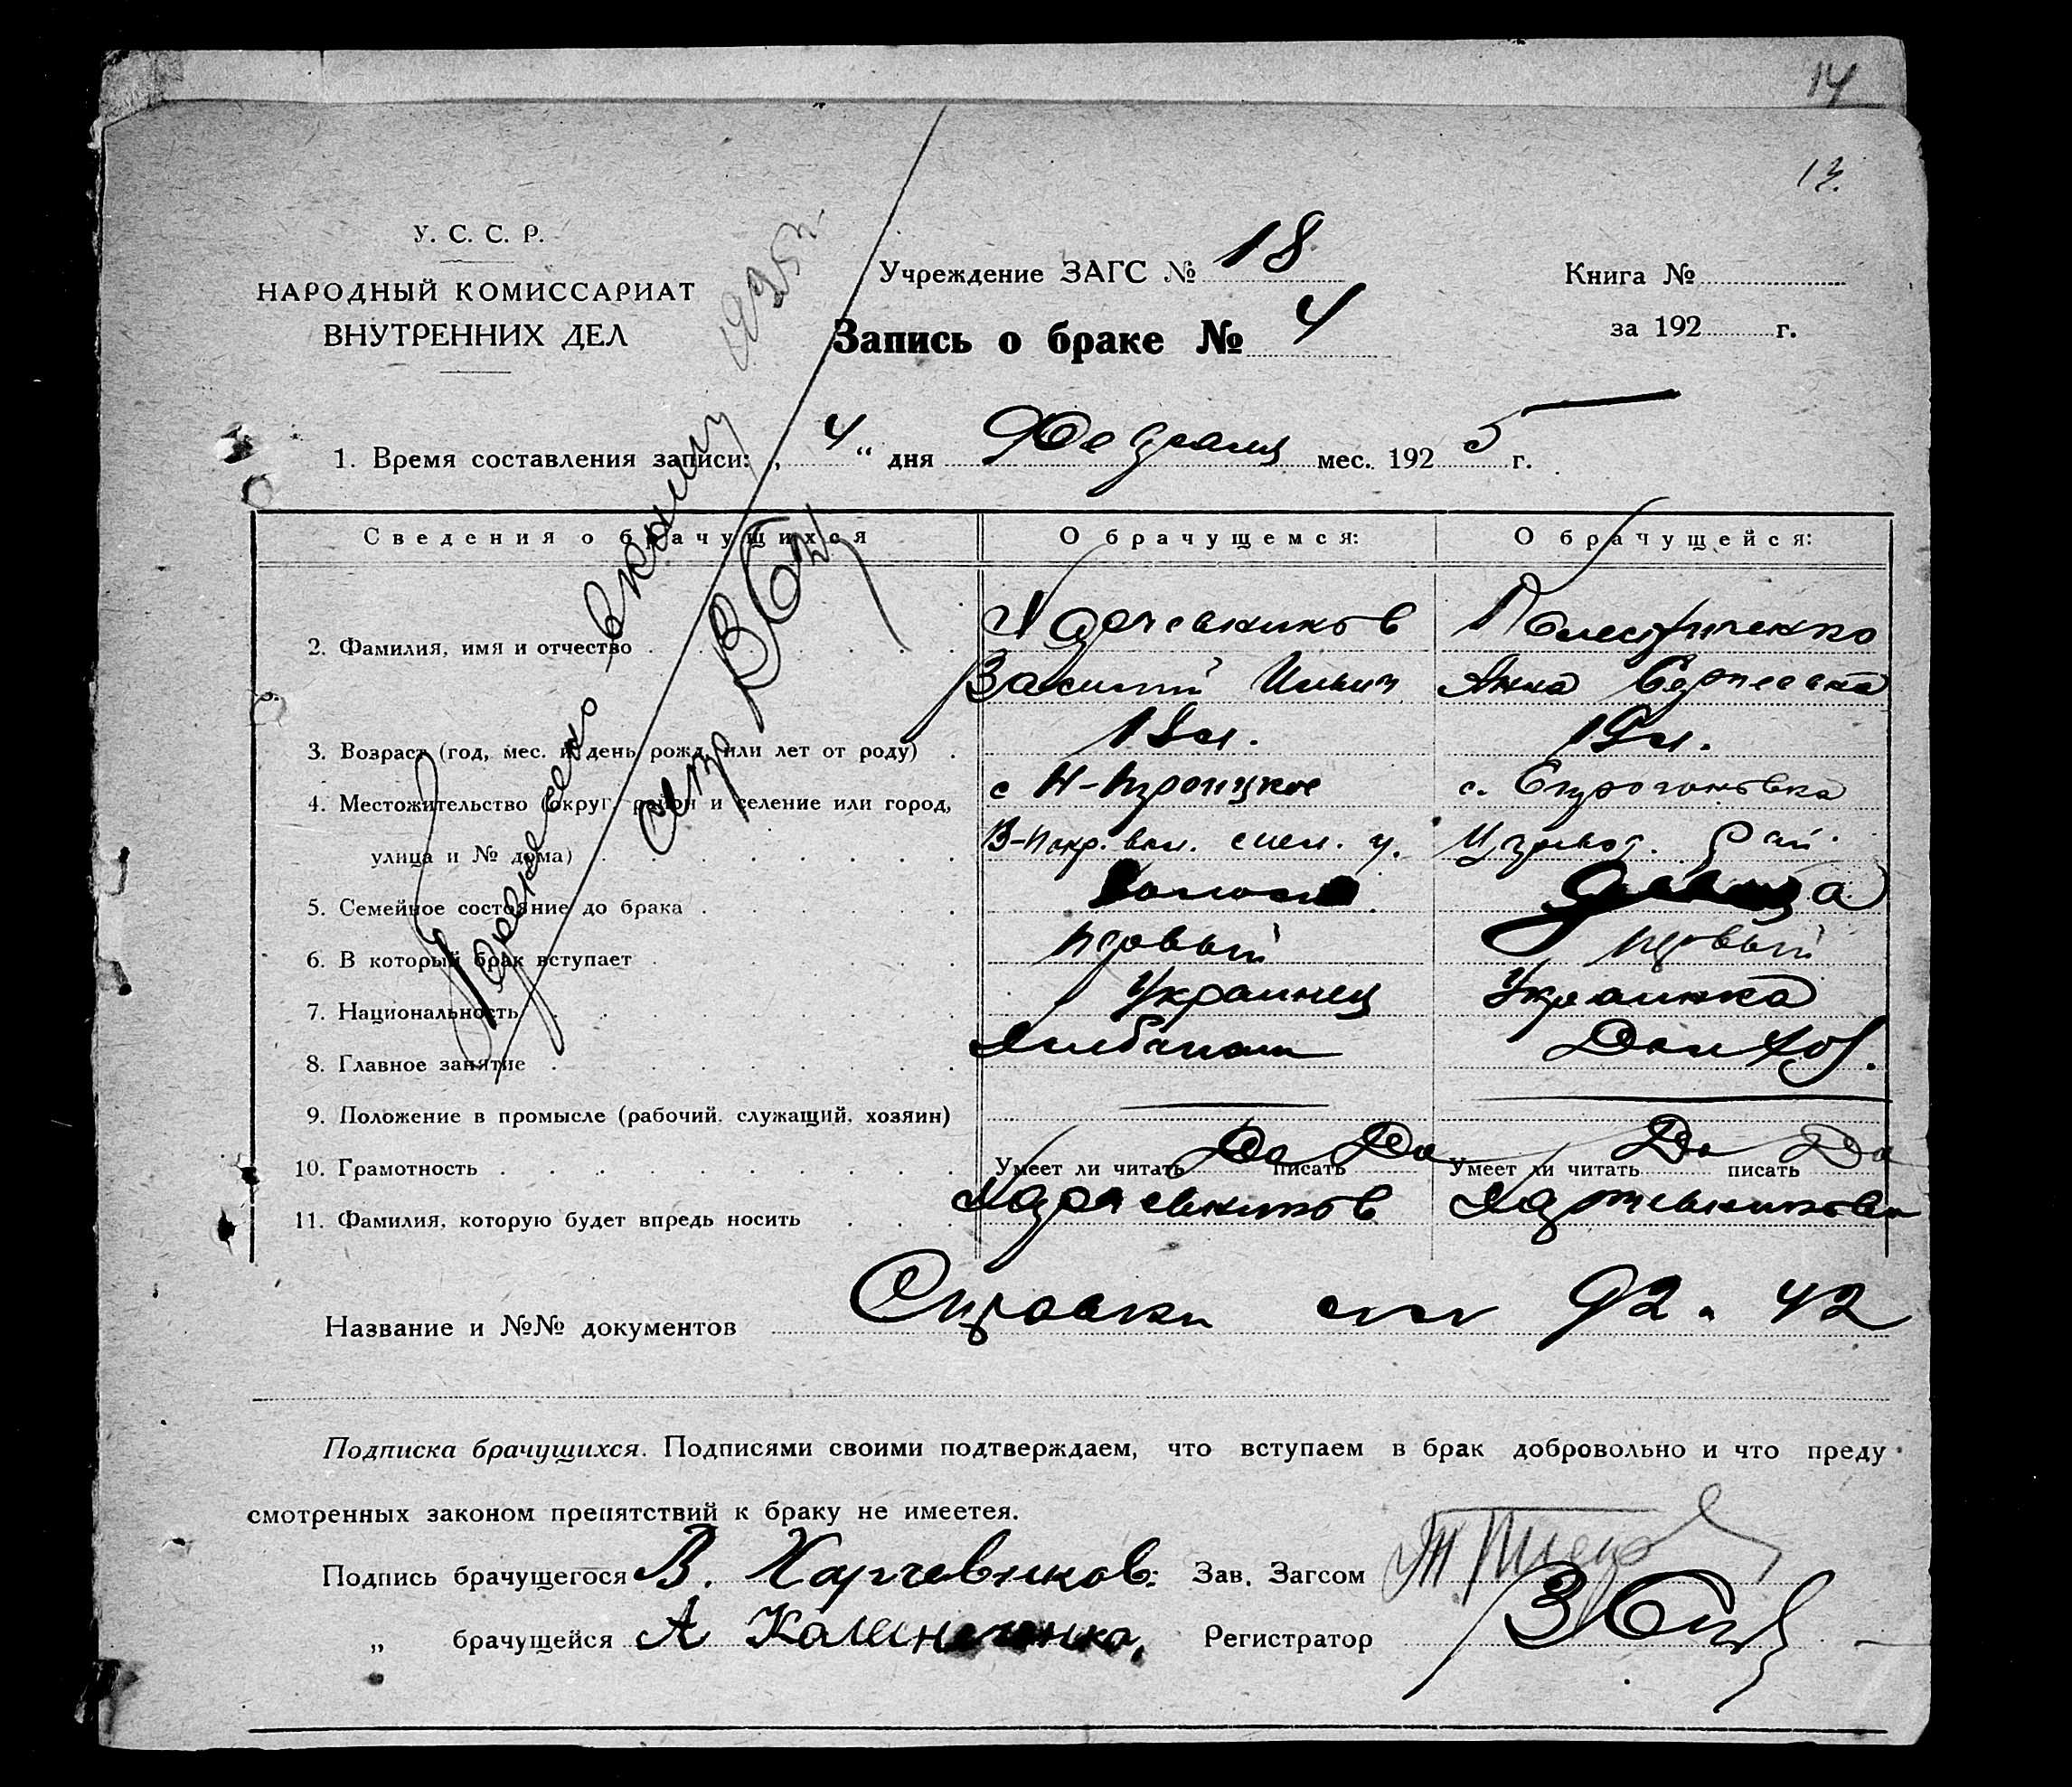 14
13.
У. С. С. Р.
НАРОДНЫЙ КОМИССАРИАТ
ВНУТРЕННИХ ДЕЛ
Учреждение ЗАГС № 18
Книга №
Запись о браке № 4
за 192 г.
1925
1. Время составления записи: „ 4 “ дня Февраля мес. 1925 г.
Сведения о брачущихся
О брачущемся:
О брачущейся:
2. Фамилия, имя и отчество
Харчевников
Василий Ильич
Анна Сергеевна
3. Возраст (год, мес. и день рожд. или лет от роду)
18 л.
19 л.
4. Местожительство (округ, район и селение или город,
с Н-Троицкое
с. Строгоновка
улица и № дома)
В-Покр. вол.
рай.
5. Семейное состояние до брака
холост
девица
6. В который брак вступает
первый
первый
7. Национальность
Украинец
Украинка
8. Главное занятие
Хлебопаш
Дом хоз.
9. Положение в промысле (рабочий, служащий, хозяин)
10. Грамотность
Умеет ли читать Да писать Да
Умеет ли читать Да писать Да
11. Фамилия, которую будет впредь носить
Харчевников
Харчевникова
Название и №№ документов Справки 92 и 42
Подписка брачущихся. Подписями своими подтверждаем, что вступаем в брак добровольно и что преду
смотренных законом препятствий к браку не имеетея.
Подпись брачущегося В. Харчевников. Зав. Загсом
„ брачущейся А Калиниченко. Регистратор